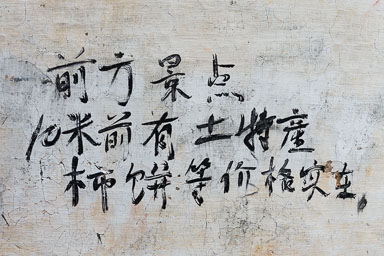 前方景点
10米前有土特産
柿饼等价格实在